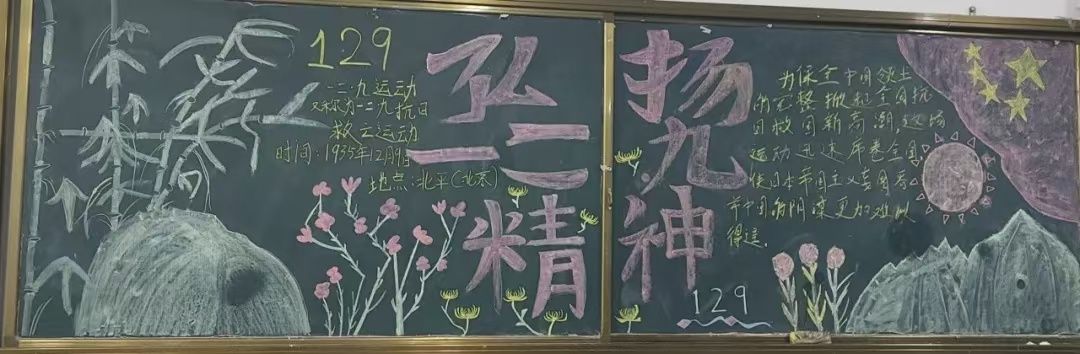 129
一二·九运动
又称为一二九抗日
救亡运动
时间:1935年12月9日
地点:北平(北京)
弘扬
一二九
精神
为保全中国领土
的完整掀起全国抗
日救国新高潮,这场
运动迅速席卷全国
使日本帝国主义妄图吞
并中国的阴谋更加难以
得逞.
129